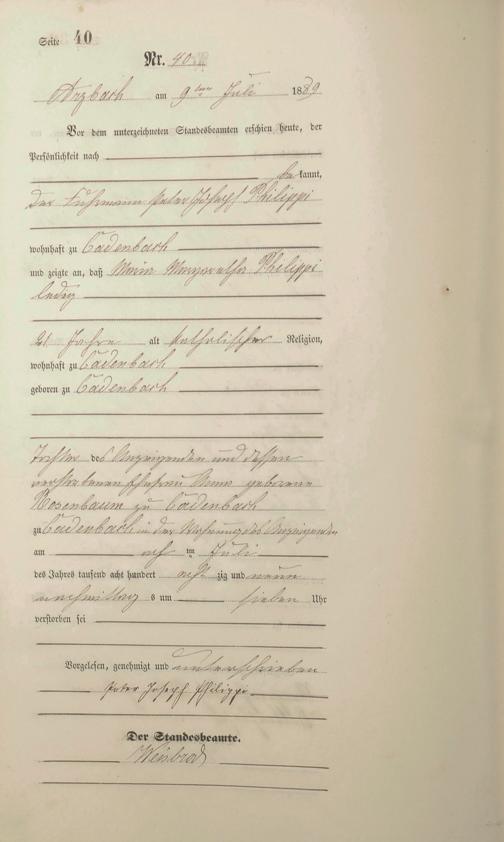 Seite 40
Nr. 40.
Arzbach am 9ten Juli 1889
Vor dem unterzeichneten Standesbeamten erschien heute, der
Persönlichkeit nach
be kannt,
der Fuhrmann Peter Joseph Philippi
wohnhaft zu Cadenbach
und zeigte an, daß Maria Margaretha Philippi
ledig
21 Jahre alt katholischer Religion,
wohnhaft zu Cadenbach
geboren zu Cadenbach
Tochter des Anzeigenden und dessen
verstorbenen Ehefrau Anna geborene
Rosenbaum zu Cadenbach
zu Cadenbach in der Wohnung des Anzeigenden
am acht ten Juli
des Jahres tausend acht hundert acht zig und neun
nachmittag s um sieben Uhr
verstorben sei
Vorgelesen, genehmigt und unterschrieben
Peter Joseph Philippi
Der Standesbeamte.